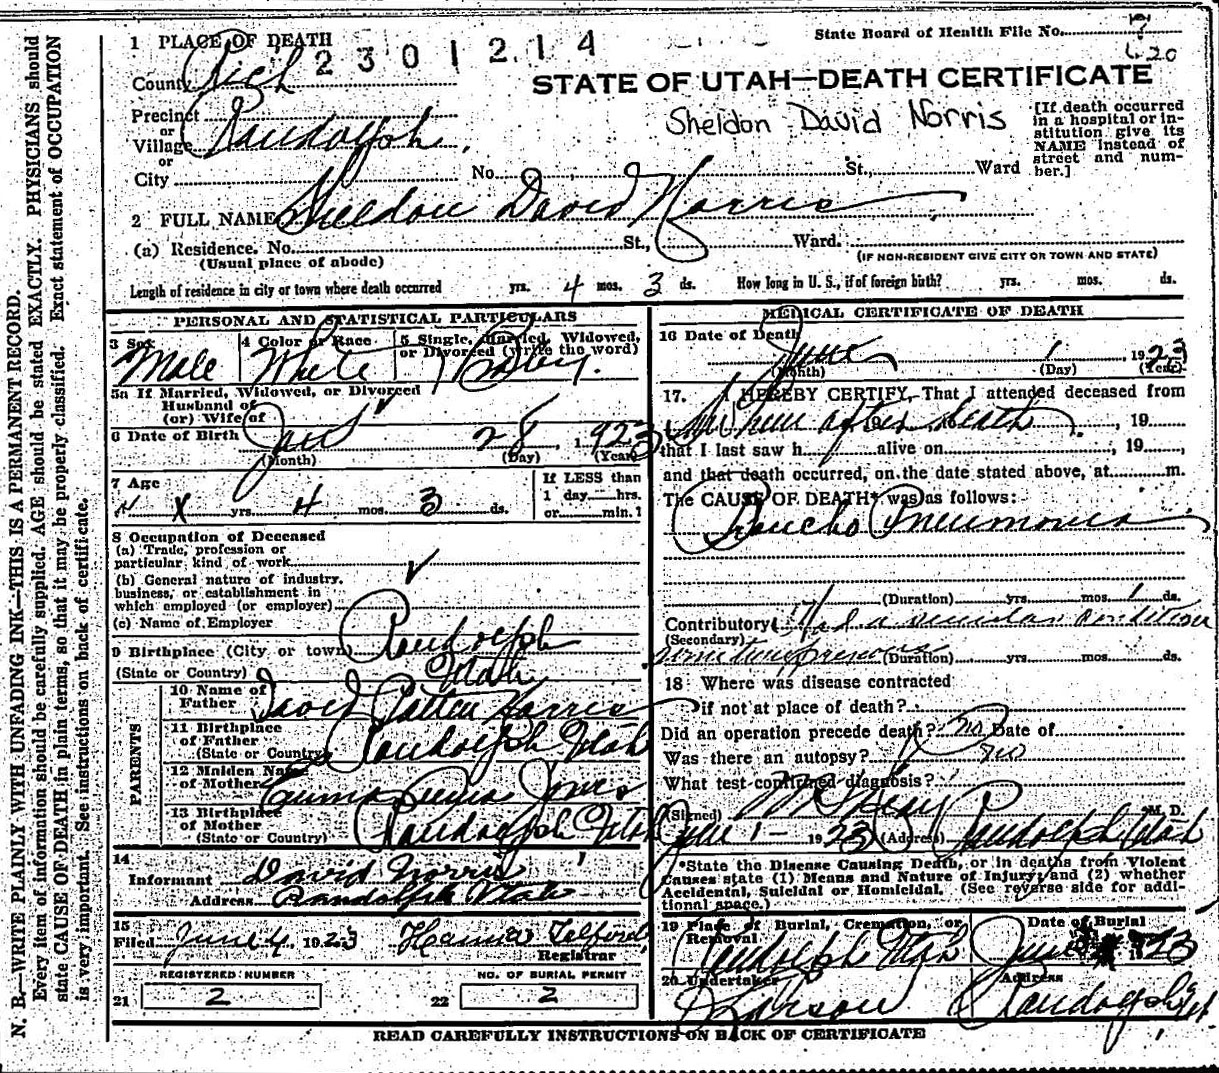 1 PLACE OF DEATH
2301214
State Board of Health File No.
County Rich
STATE OF UTAH—DEATH CERTIFICATE
Precinct
or
Village Randolph.
Sheldon David Norris
[If death occurred in a hospital or institution give its NAME instead of street and number.]
or
City No. St., Ward
2 FULL NAME Sheldon David Norris
(a) Residence. No. St., Ward.
(Usual place of abode)
(IF NON-RESIDENT GIVE CITY OR TOWN AND STATE)
Length of residence in city or town where death occurred yrs. 4 mos. 3 ds. How long in U. S., if of foreign birth? yrs. mos. ds.
PERSONAL AND STATISTICAL PARTICULARS
3 Sex
Male
4 Color or Race
White
5 Single, Married, Widowed, or Divorced (write the word)
Baby.
5a If Married, Widowed, or Divorced
Husband of
(or) Wife of
6 Date of Birth Jan 28, 1923
(Month) (Day) (Year)
7 Age
X yrs. 4 mos. 3 ds.
If LESS than
1 day hrs.
or min.
8 Occupation of Deceased
(a) Trade, profession or
particular kind of work
(b) General nature of industry.
business, or establishment in
which employed (or employer)
(c) Name of Employer
9 Birthplace (City or town) Randolph
(State or Country) Utah
PARENTS
10 Name of
Father David Patten Norris
11 Birthplace
of Father
(State or Country) Randolph Utah
12 Maiden Name
of Mother Jones
13 Birthplace
of Mother
(State or Country) Randolph Utah
14
Informant David Norris
Address Randolph Utah
15
Filed June 4, 1923 Telford
Registrar
REGISTERED NUMBER NO. OF BURIAL PERMIT
21 2 22 2
MEDICAL CERTIFICATE OF DEATH
16 Date of Death
June 1, 1923
(Month) (Day) (Year)
17. I HEREBY CERTIFY, That I attended deceased from
after death, 19
that I last saw h alive on, 19
and that death occurred, on the date stated above, at m.
The CAUSE OF DEATH* was as follows:
Broncho Pneumonia
(Duration) yrs. mos. 1 ds.
Contributory Had a similar condition
(Secondary)
sometime previous (Duration) yrs. mos. ds.
18 Where was disease contracted
if not at place of death?
Did an operation precede death? no Date of
Was there an autopsy? no
What test confirmed diagnosis?
(Signed) M. D.
June 1- 1923 (Address) Randolph Utah
*State the Disease Causing Death, or in deaths from Violent
Causes state (1) Means and Nature of Injury; and (2) whether
Accidental, Suicidal or Homicidal. (See reverse side for addi-
tional space.)
19 Place of Burial, Cremation, or
Removal
Randolph Utah
Date of Burial
June 1923
20 Undertaker
Larson
Address
Randolph Ut.
READ CAREFULLY INSTRUCTIONS ON BACK OF CERTIFICATE
N. B.—WRITE PLAINLY WITH UNFADING INK—THIS IS A PERMANENT RECORD.
Every item of information should be carefully supplied. AGE should be stated EXACTLY. PHYSICIANS should
state CAUSE OF DEATH in plain terms, so that it may be properly classified. Exact statement of OCCUPATION
is very important. See instructions on back of certificate.